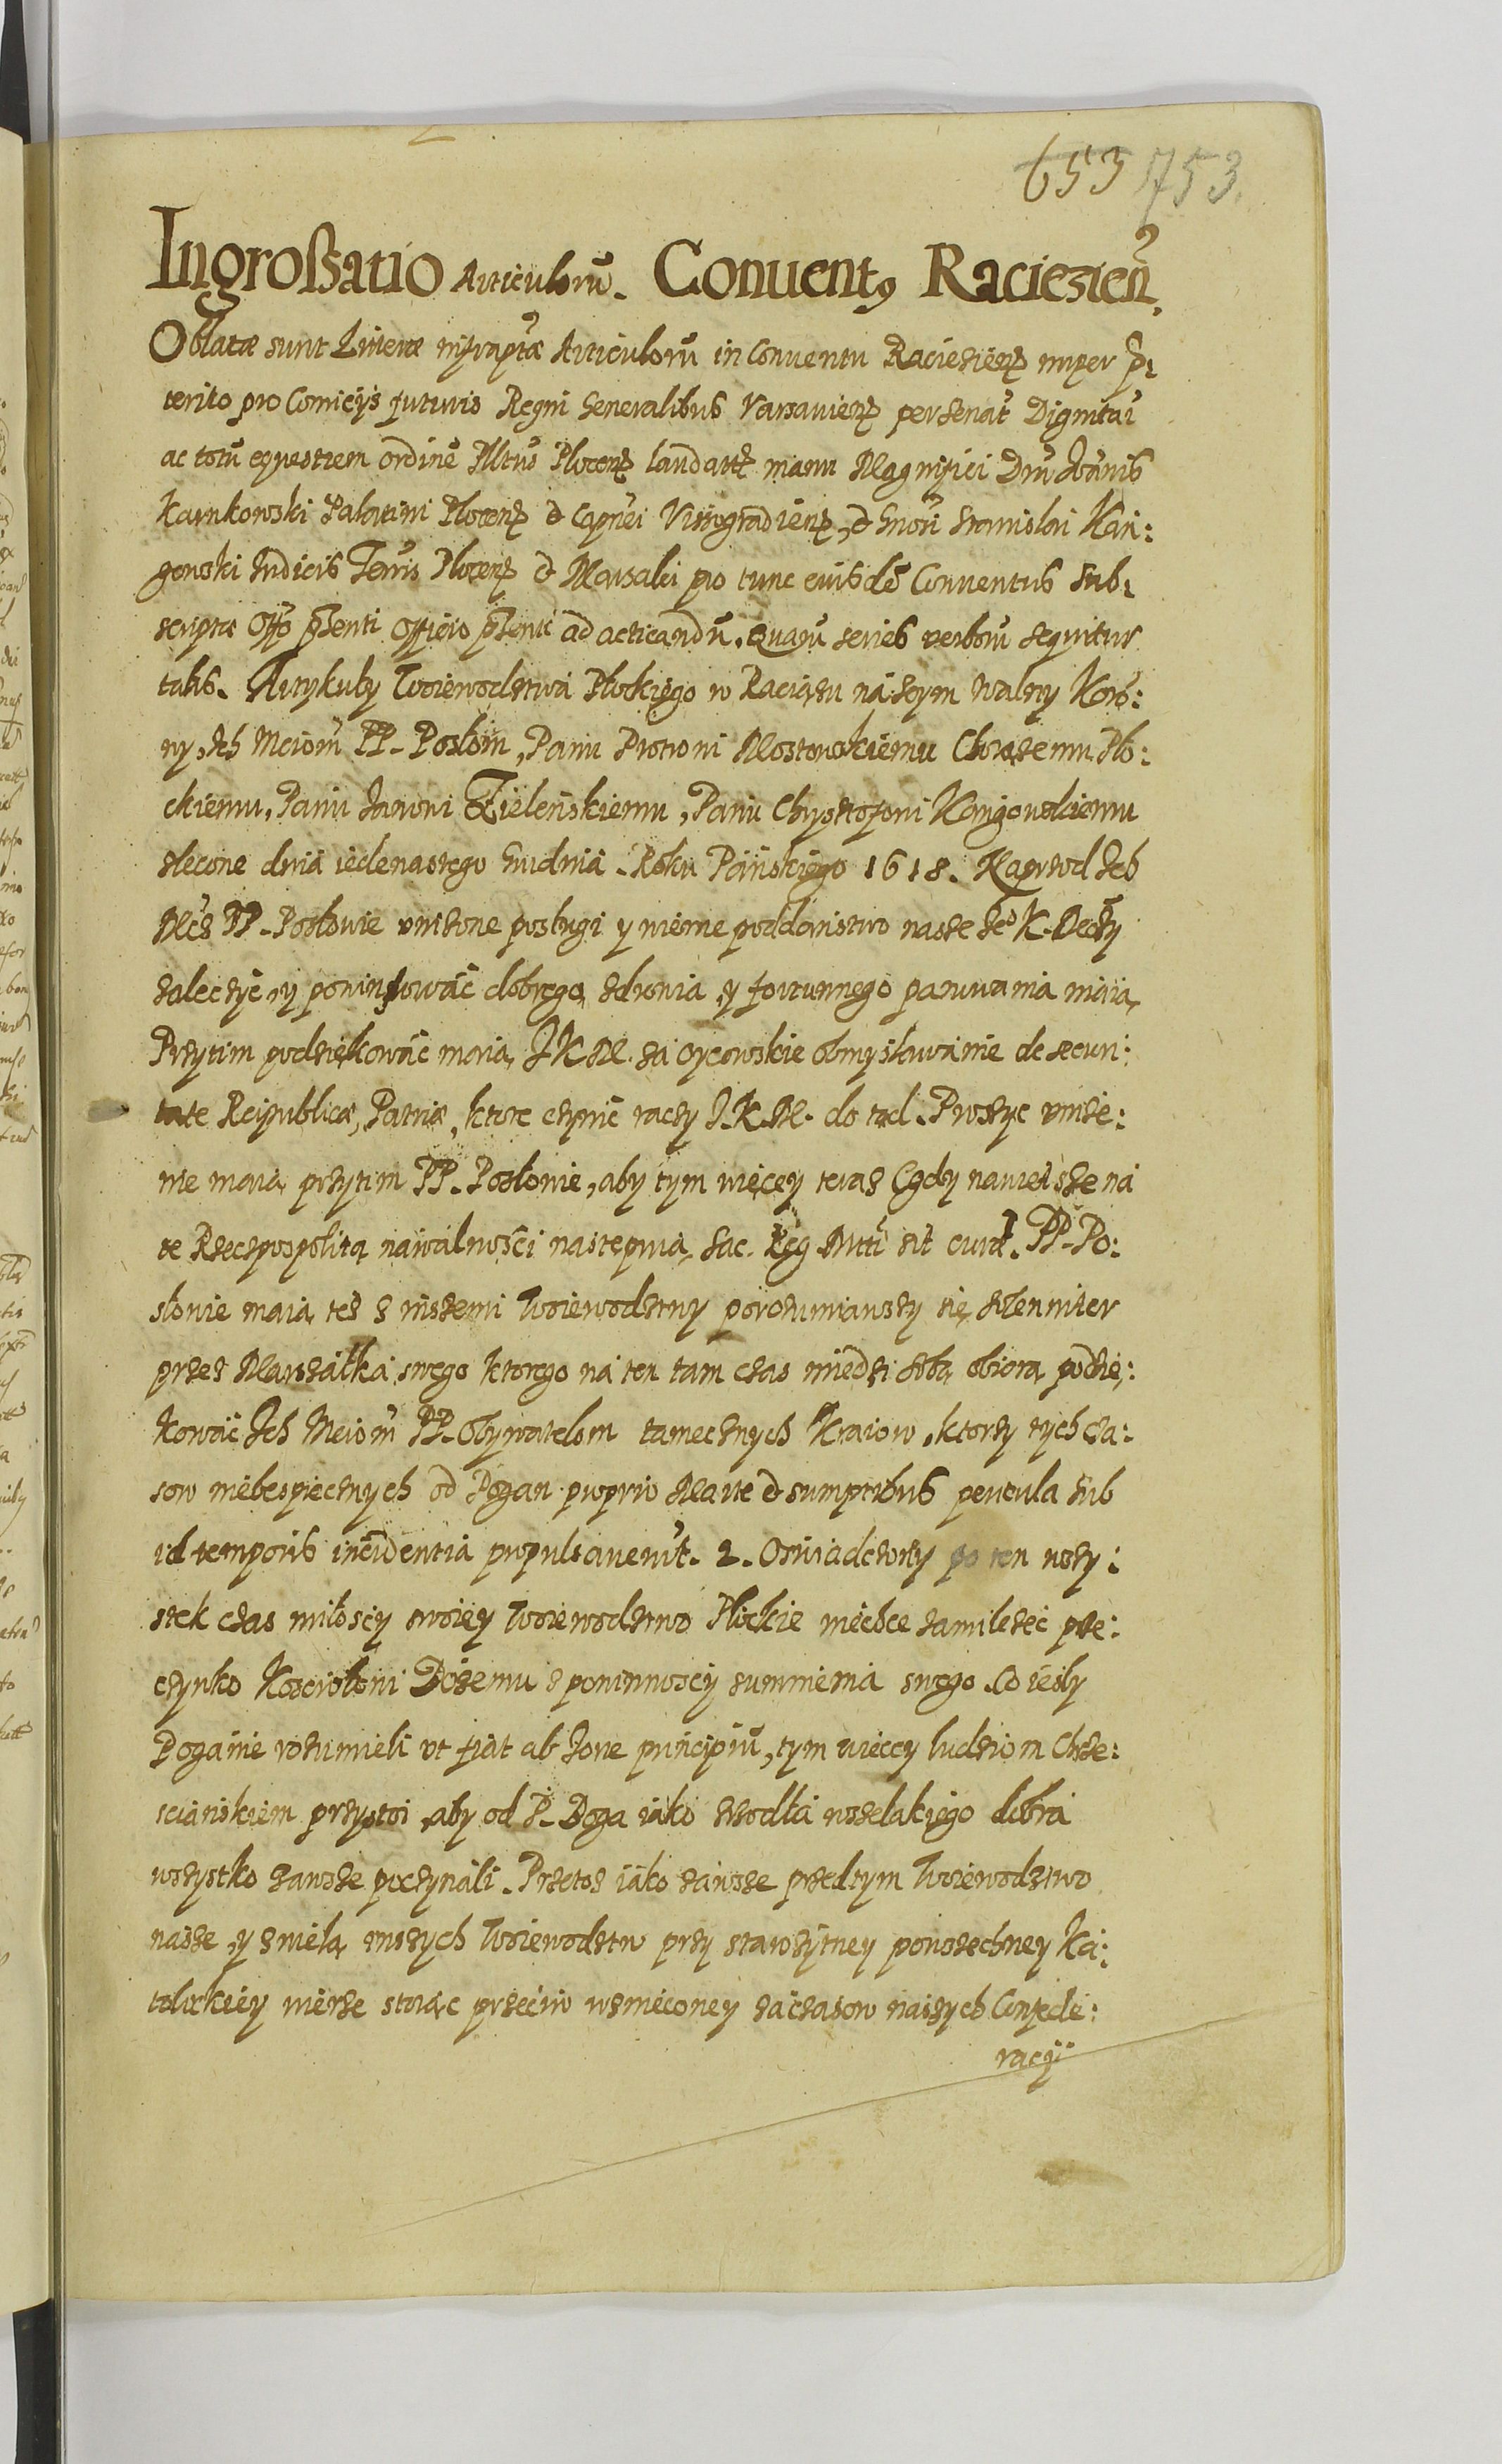 653 753.
Ingroßatio Articulorū. Conuent9 Raciezień.
Oblatæ sunt Literæ infraptæ Articulorū in Conuentu Raciesienz nuper p̄:
terito pro Comicijs futuris Regni Generalibus Varsauienz per Senat Dignitar
ac totū equestrem ordinē Pltus Plocenz laudatæ manu Magnifici Dni Joānis
Karnkowski Palatini Plocenz & Capnei Vissogradienz, & Gnosi Stanislai Kan:
gowski Judicis Terris Plocenz & Marsalci pro tunc eiusdē Conuentus sub:
scriptæ Offo pn̄senti Officio pn̄senti ad acticandū. Quarū series verborū sequitur
talis. Artykuly Woiewodztwa Plockiego w Raciązu na Seym Walny Koro:
ny, Ich Mciom PP. Posłom, Panu Piotroni Mostowskiemu Chorązemu Plo:
ckiemu, Panu Janoni Zieleńskiemu, Panu Chrysztofoni Kangowskiemu
zlecone dnia iedenastego Grudnia. Roku Pańskiego 1618. Naprzod Ich
Mćz PP. Posłowie vnizone poslugi y wierne poddanstwo nasze Jeo K. Mczy
zaleczyc, y powinszowac dobrego zdrowia, y fortunnego panuwania maia,
Przytim podziękowac maia, J K M. za oycowskie obmyslawanie de securi:
tate Reipublicæ, Patriæ, ktore czynic raczy J. K. M. do tąd. Proszyc vnize:
nie maia, przytim PP. Posłowie, aby tym więcey teraz Cgdy nawietsze na
te Rzeczpospolitą nawalnosci nastepuia, Sac. Reg. Mtti sit curæ. PP. Po:
slowie maia, tez z inszemi Woiewodztwy porozumiawszy się, solenniter
przez Marszałka, swego ktorego na ten tam czas miedzi sobą obiora, podzię:
kowac Ich Mciom PP. Obywatelom tamecznych Kraiow, ktorzy tych cza:
sow niebezpiecznych od Pogan proprio Marte & sumptibus pericula sub
id temporis incidentia propulsauerūt. 2. Oswiadczony po ten wszy:
stek czas milosciy swoiey Woiewodztwo Plockie niechce zamileziec prze:
czynko Kosciołoni Bozemu z powinnosciy summienia swego. Co iesly
Pogaine rozumieli vt fiat ab Joue principiū, tym wieccy ludziom Chrze:
sciańskiem przystoi, aby od P. Boga iako zrzodla wszelakiego dobra
wszystko zawsze poczynali. Przetoz iako zawsze przedtym Woiewodztwo
nasze, y zwielą, inszych Woiewodztw przy starozytney powszechney Ka:
tolickiey wierze stoiąc przeciw wznieconey za czasow naszych Confede:
racyi